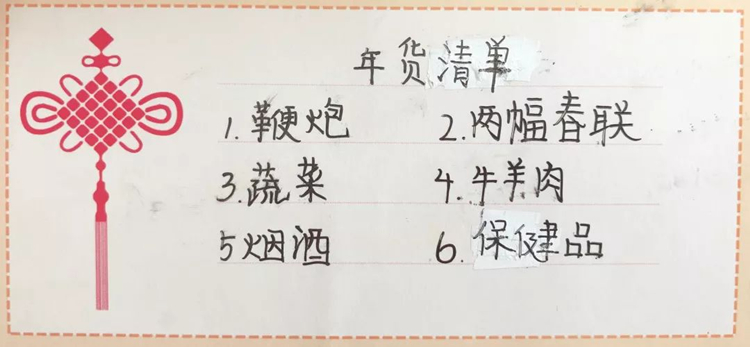 年货清单
1. 鞭炮 2. 两幅春联
3. 蔬菜 4. 牛羊肉
5 烟酒 6. 保健品